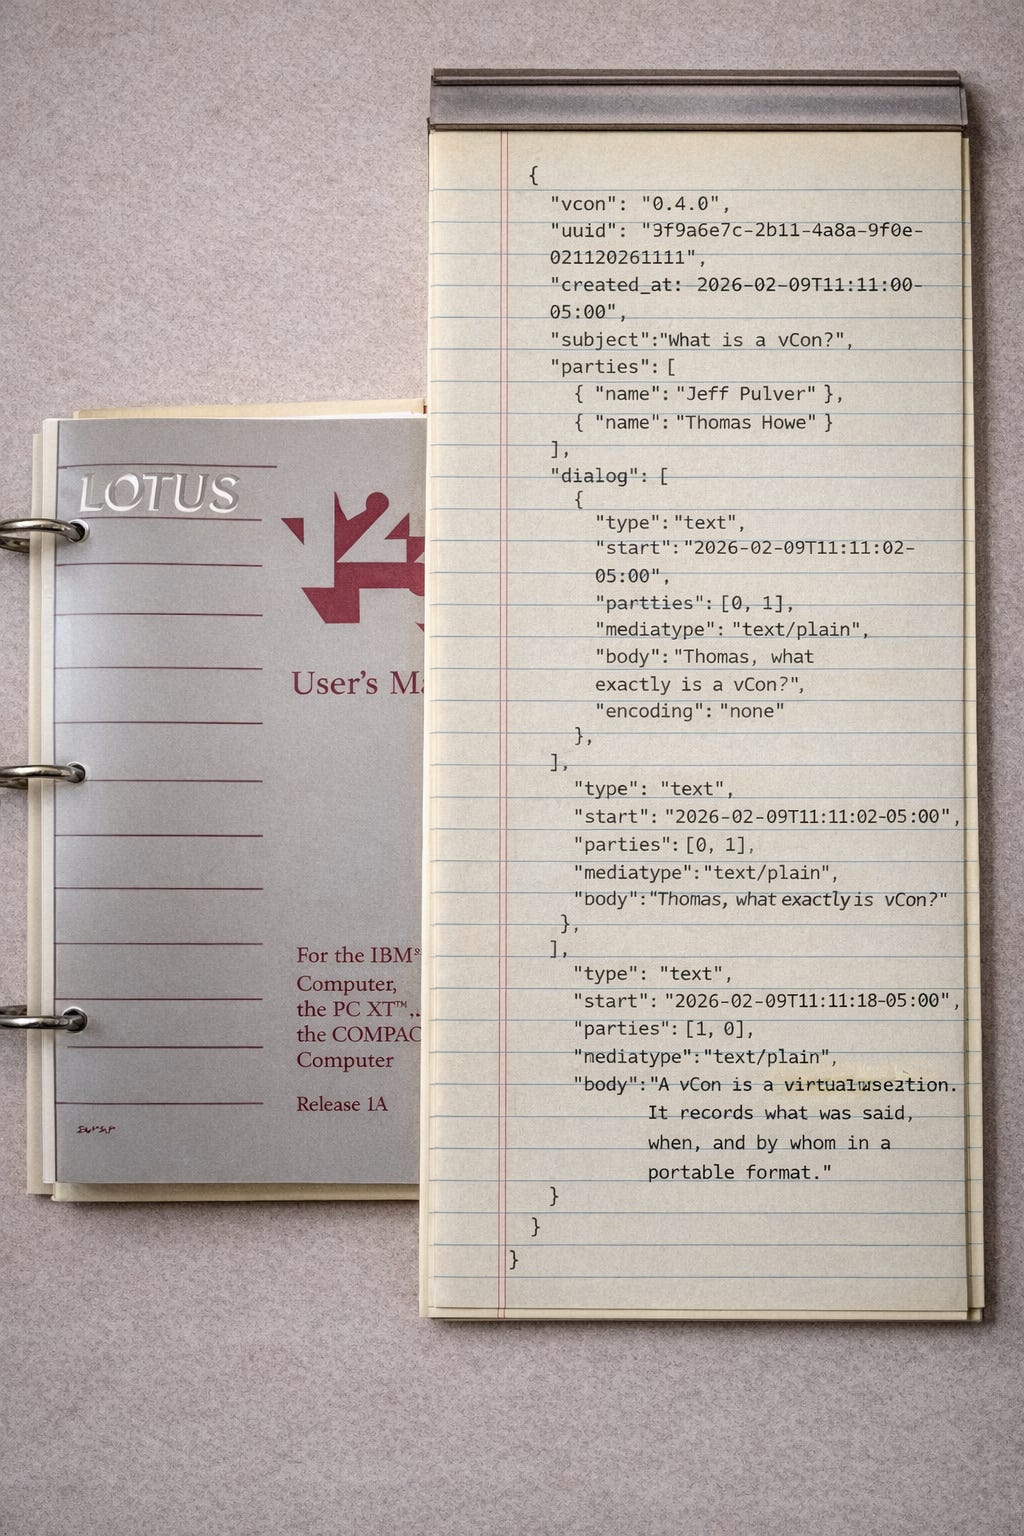 LOTUS
123
User's Ma
For the IBM®
Computer,
the PC XT™,.
the COMPAC
Computer
Release 1A
{
"vcon": "0.4.0",
"uuid": "3f9a6e7c-2b11-4a8a-9f0e-
021120261111",
"created_at: 2026-02-09T11:11:00-
05:00",
"subject":"What is a vCon?",
"parties": [
{ "name": "Jeff Pulver" },
{ "name": "Thomas Howe" }
],
"dialog": [
{
"type": "text",
"start": "2026-02-09T11:11:02-
05:00",
"partties": [0, 1],
"mediatype": "text/plain",
"body": "Thomas, what
exactly is a vCon?",
"encoding": "none"
},
],
"type": "text",
"start": "2026-02-09T11:11:02-05:00",
"parties": [0, 1],
"mediatype":"text/plain",
"body":"Thomas, what exactly is vCon?"
},
],
"type": "text",
"start": "2026-02-09T11:11:18-05:00",
"parties": [1, 0],
"nediatype":"text/plain",
"body":"A vCon is a
It records what was said,
when, and by whom in a
portable format."
}
}
}